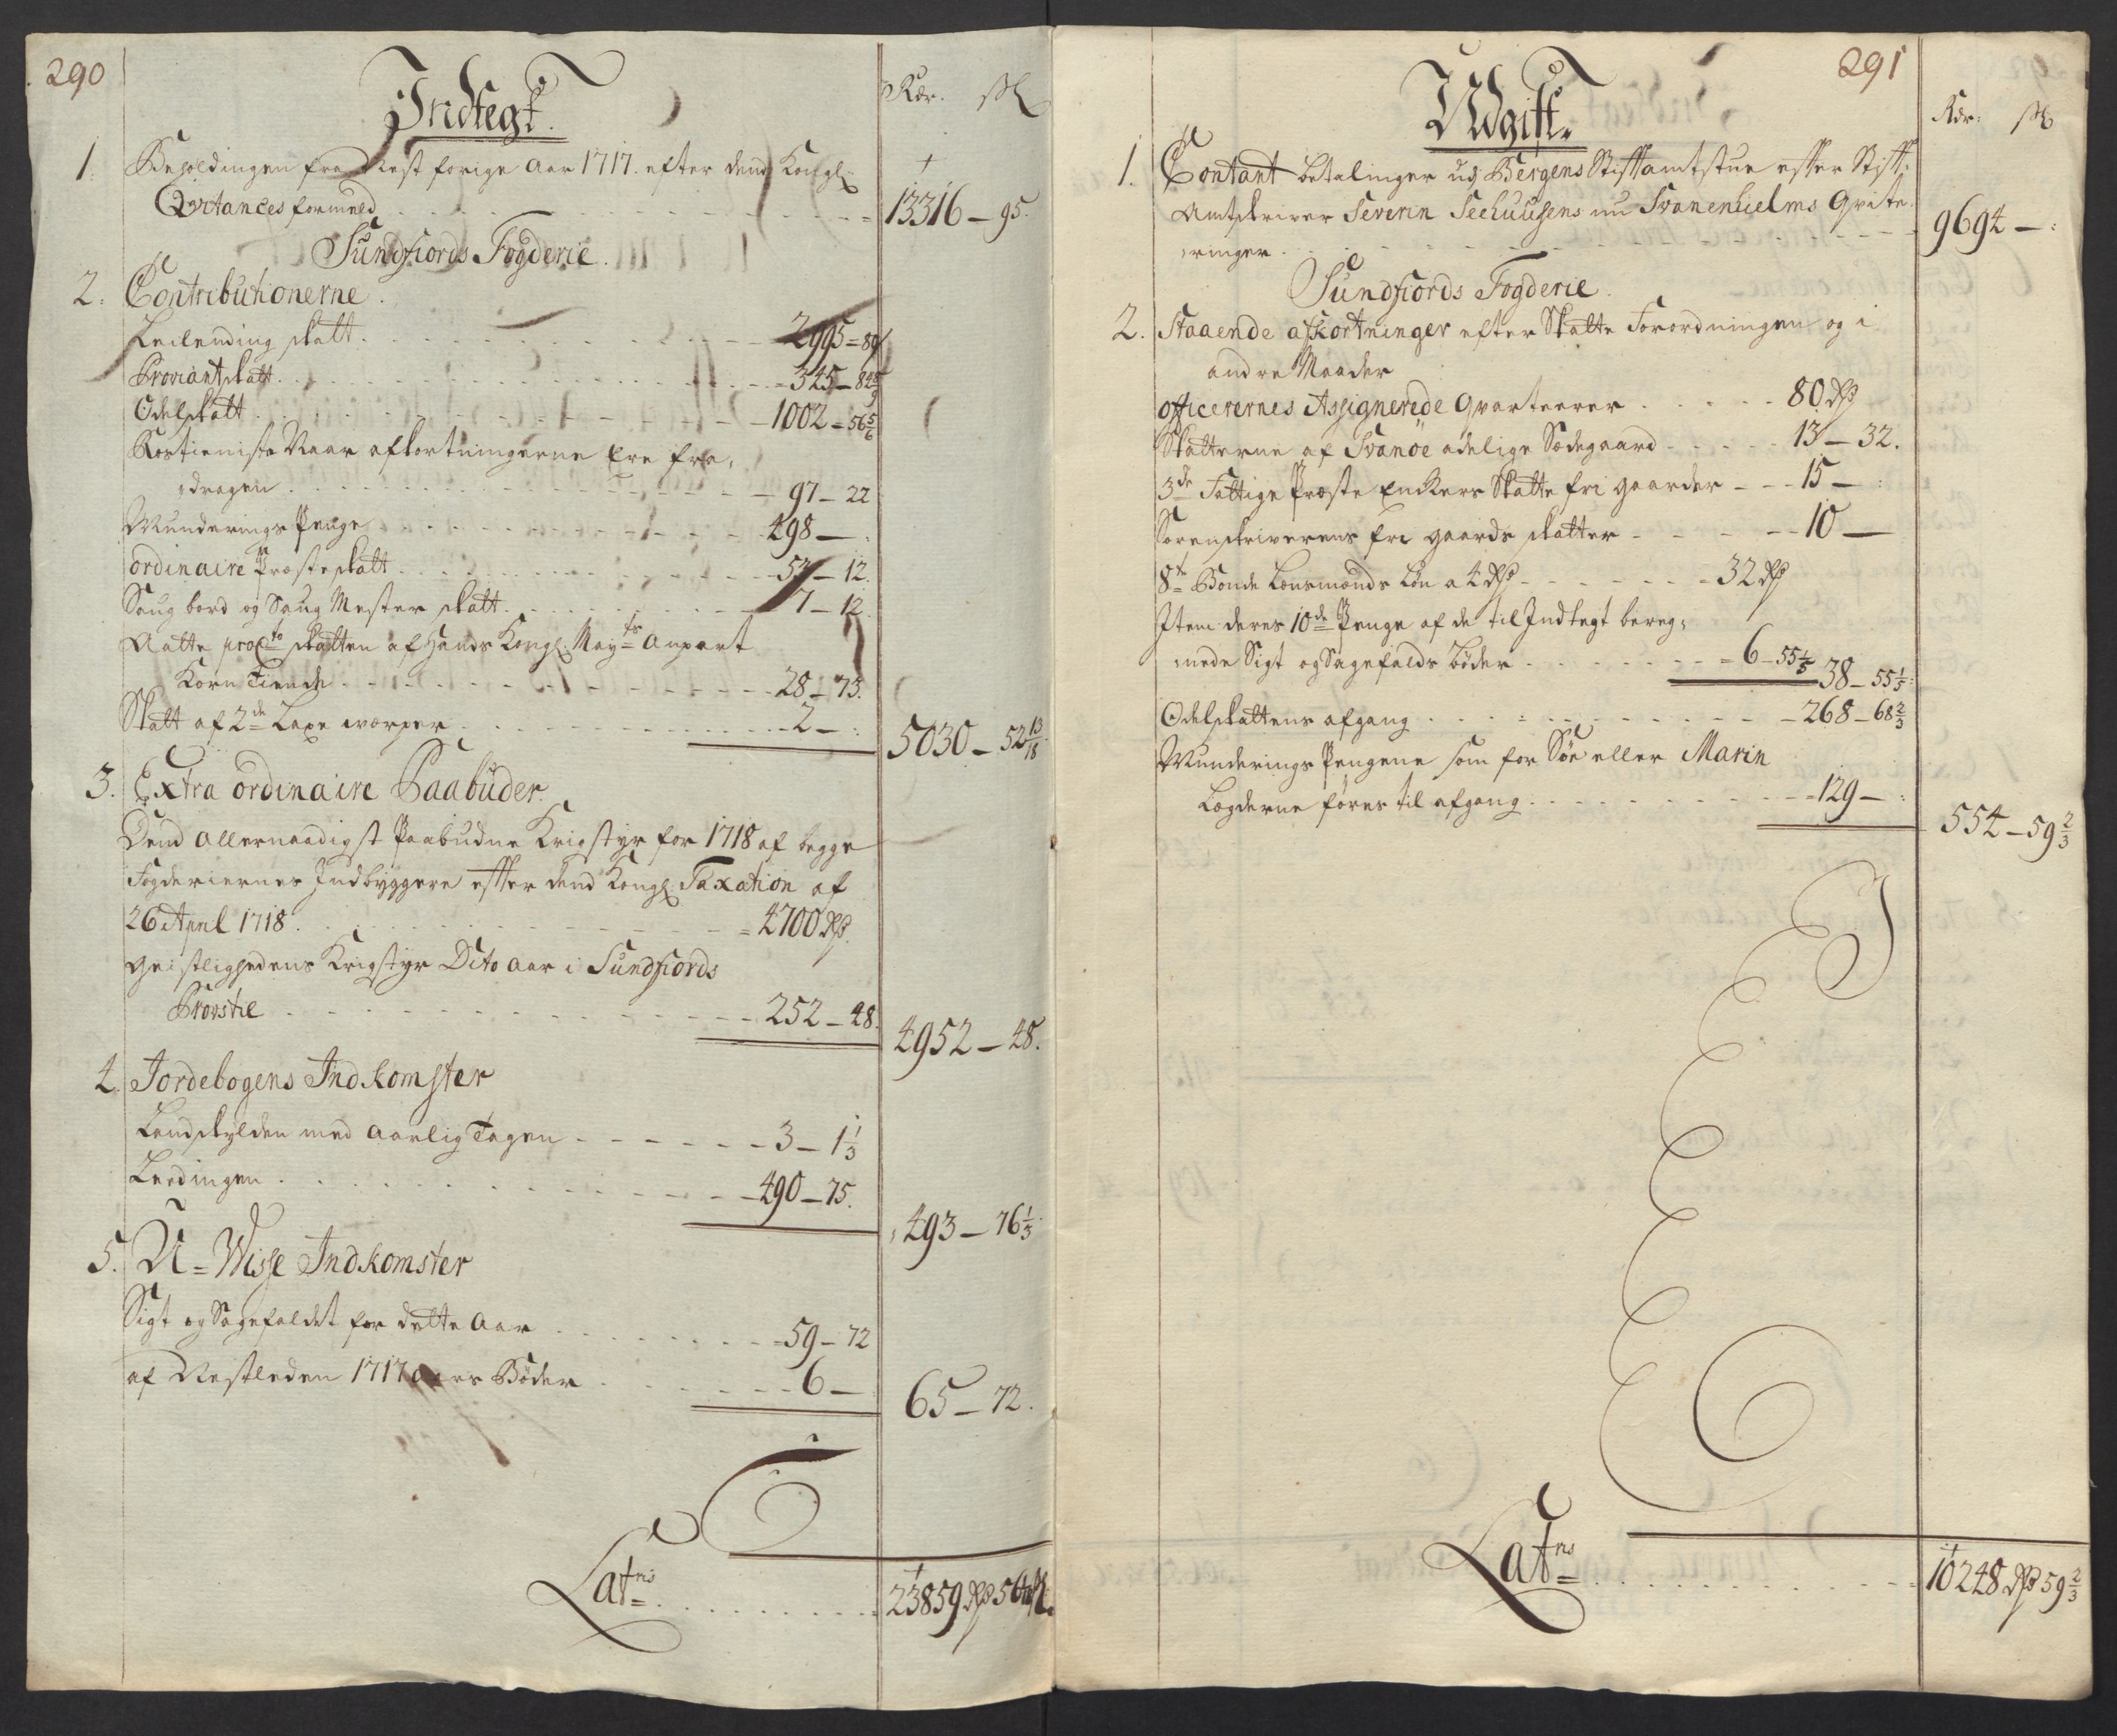 290
Indtegt.
Rdr. ẞ
1. Beholdingen fra Nest forige Aar 1717. efter dend Kongl:
Qvitances formeld 13316 – 95.
Sundfiords Fogderie.
2. Contributionerne.
Leilending skatt 2995 – 89
Proviantskatt 345 – 84 5/9
Odelskatt 1002 – 56 5/6
Rostieniste Naar afkortningerne Ere fra,
dragen 97 – 22
Munderings Penge 498 – :
ordinaire Præsteskatt 53 – 12.
Saug bord og Saug Mester skatt 7 – 12.
Aatte procto skatten af Hands Kongl: Mayts Anpart
Korn Tiende 28 – 75.
Skatt af 2de Laxe worper 2 – :
5030 – 52 13/18
3. Extra ordinaire Paabuder.
Dend Allernaadigst Paabudne Krigstyr for 1718 af begge
Fogderiernes Indbyggere efter dend Kongl: Taxation af
26 April 1718. 4700 rdr.
Geistlighedens Krigstyr Dito Aar i Sundfiords
Provstie 252 – 48.
4952 – 48.
4. Jordebogens Indkomster
Landskylden med Aarlig Tagen 3 – 1 1/3
Leedingen 490 – 75.
493 – 76 1/3
5. U-Wisse Indkomster
Sigt og Sagefaldet for dette Aar 59 – 72
af Restleden 1717 Aars Bøder 6 –
65 – 72.
Latris 23859 rdr 56
291
Udgift.
Rdr: ẞ
1. Contant betalinger udj Bergens Stiftamtstue efter Stift:
Amtskriver Severin Seehuusens nu Svanenhielms Qvite
ringer 9694 – :
Sundfiords Fogderie.
2. Staaende afkortninger efter Skatte Forordningen og i
andre Maader
officerernes Assignerede Qvarteerer 80 rdr
Skatterne af Svanöe adelige Sædegaard 13 – 32.
3de Fattige Præste Enckers Skatte fri gaarder 15 – :
Sorenskriverens fri gaards skatter 10 –
8te Bonde Lensmænds Løn a 4 rdr 32 rdr
Item deres 10de Penge af de til Indtegt bereg,
nede Sigt og Sagefalds bøder 6 – 55 1/5
38 – 55 1/5:
Odelskattens afgang 268 – 68 2/3
Munderings Pengene som for Søe eller Marin
Lægderne føres til afgang 129 – :
554 – 59 2/3
Latris 10248 rdr 59 2/3